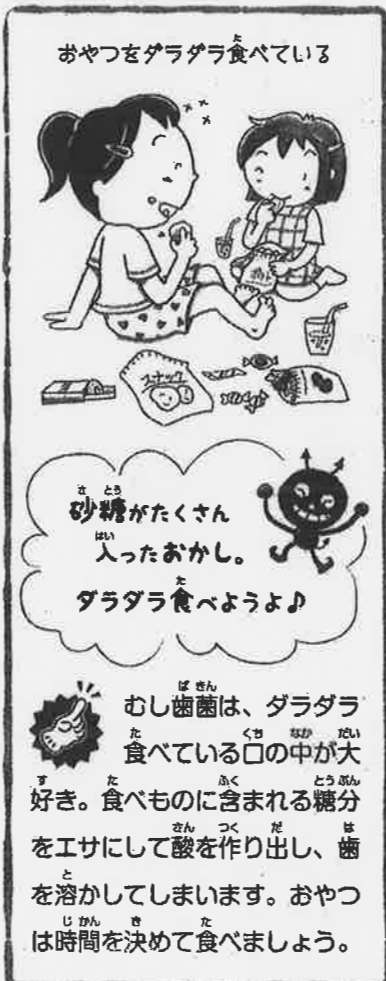 おやつをダラダラ食べている
スナック
砂糖がたくさん
入ったおかし。
ダラダラ食べようよ♪
むし歯菌は、ダラダラ
食べている口の中が大
好き。食べものに含まれる糖分
をエサにして酸を作り出し、歯
を溶かしてしまいます。おやつ
は時間を決めて食べましょう。